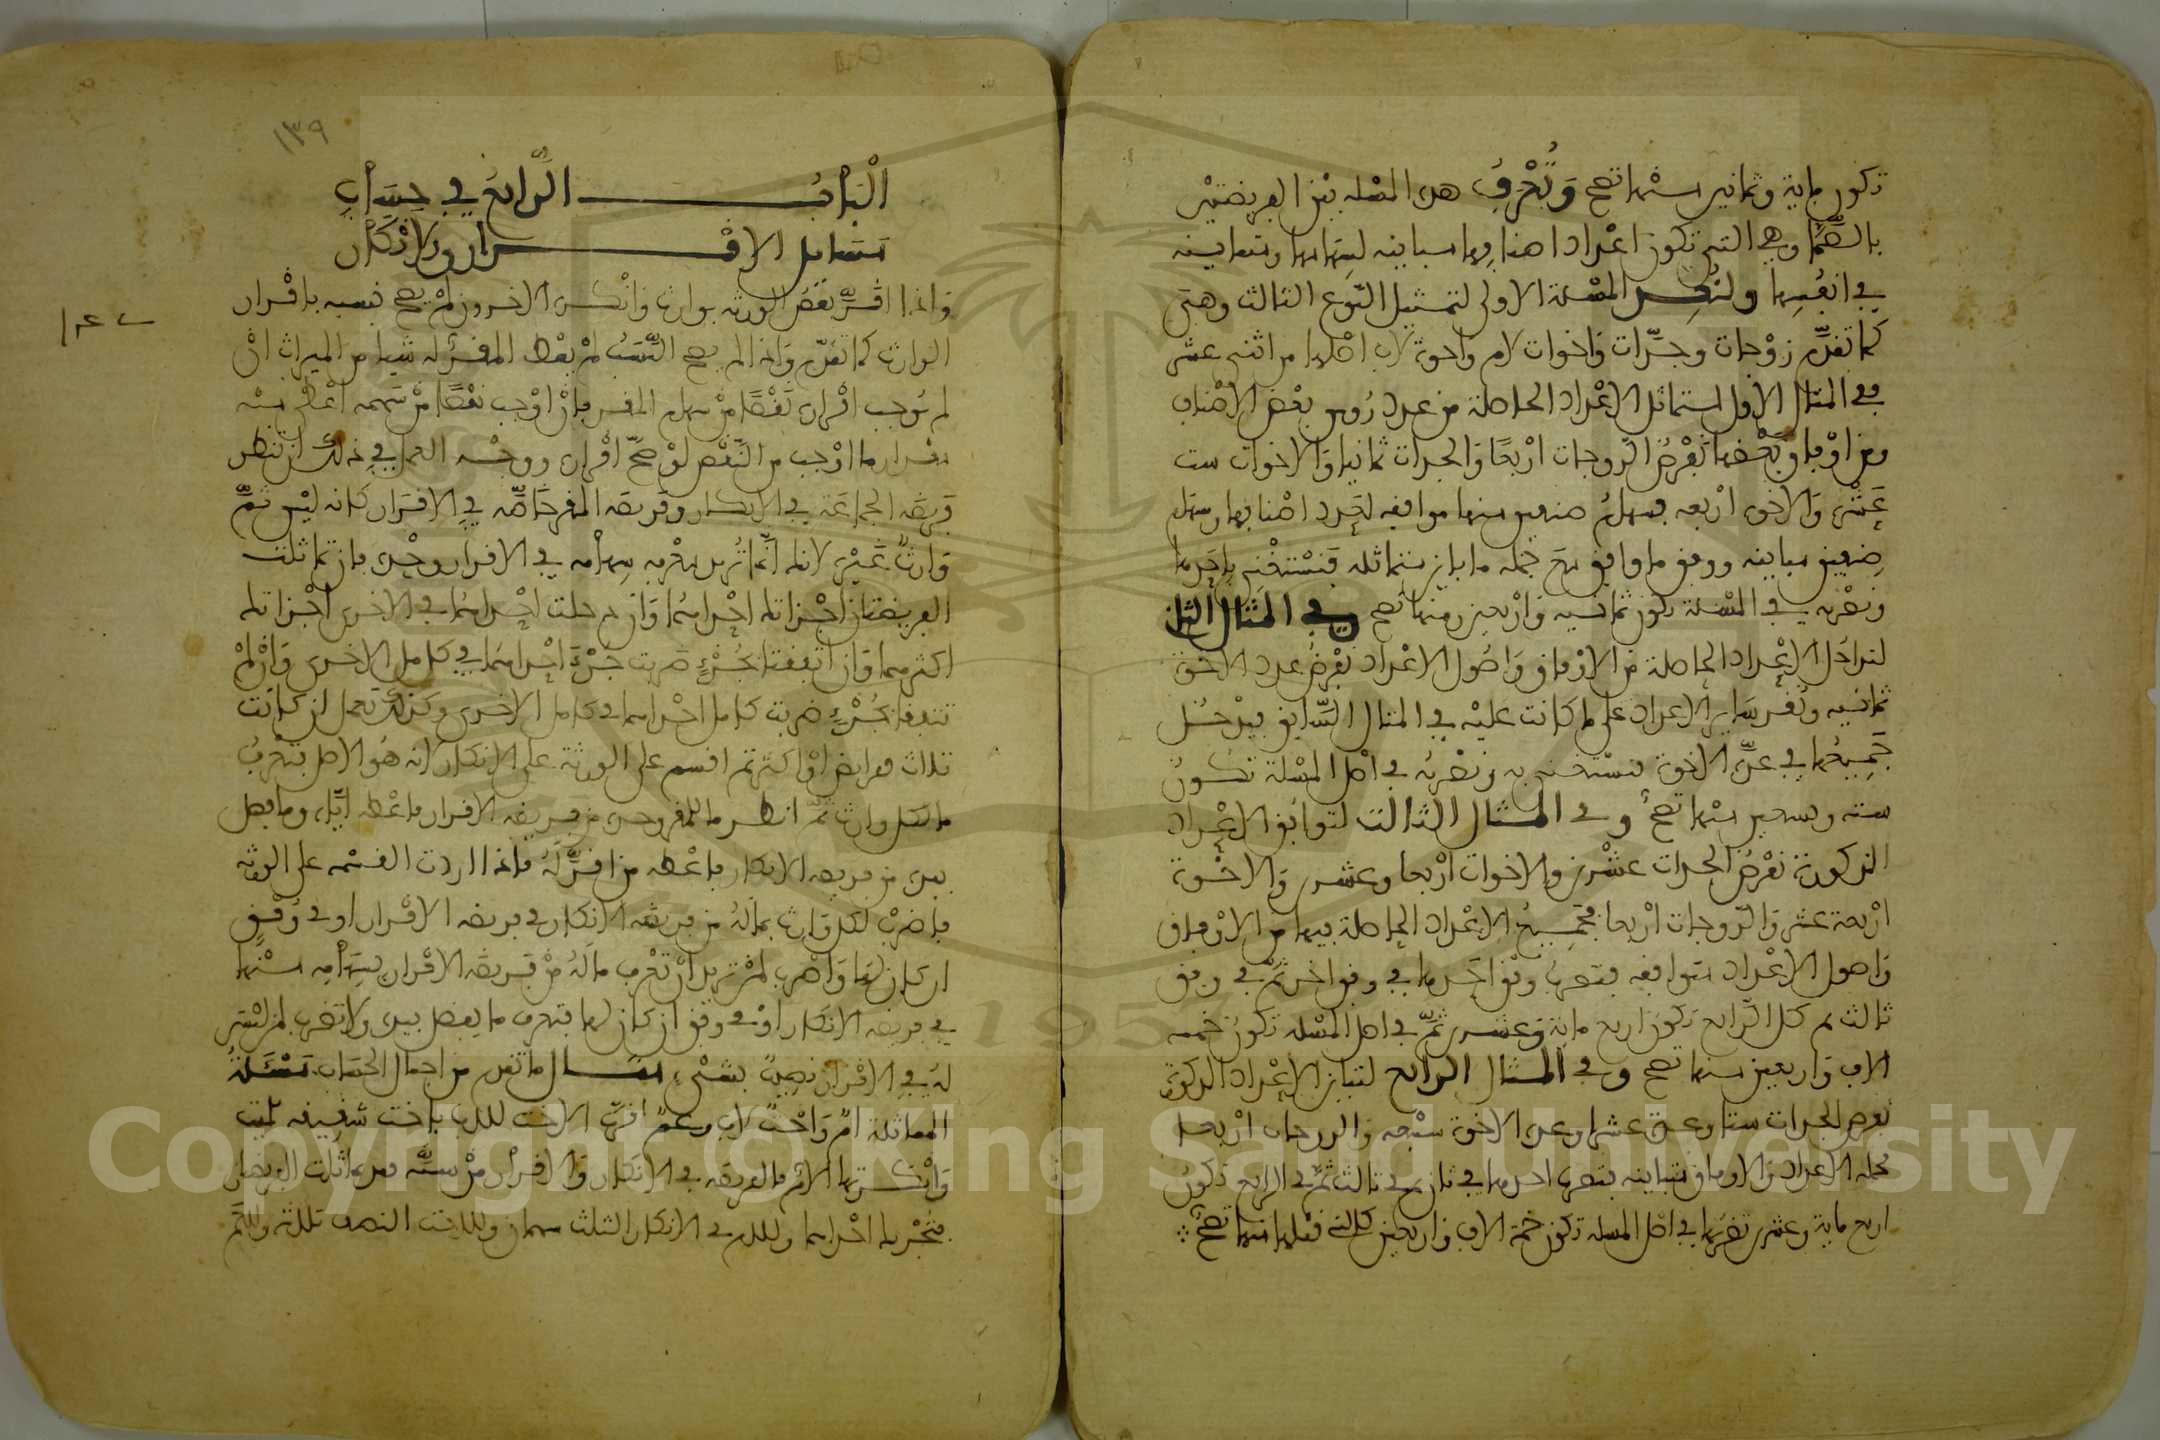 تكون ماية وثمانين منها تصح وتعرف هذه المسئلة بين الفرضيين
بالصما وهي التي تكون اعداد اصنافها مباينه لسهامها ومتباينه
في انفسها ولنكرر المسئلة الاولى لتمثيل النوع الثالث وهي
كما تقدم زوجات وجدات واخوات لام واخوة لاب اصلها من اثني عشر
ففي المثال الاول لتماثل الاعداد الحاصلة من عدد رءوس بعض الاصناف
ومن اوفاق بعضها تفرض الزوجات اربعا والجدات ثمانيا والاخوات ست
عشرة والاخوة اربعه فسهام صنفين منها موافقه لعدد اصنافها وسهام
صنفين مباينه ووفق ما وافق مع جملة ما باين متماثله فتستغني باحدها
وتضربه في المسئلة تكون ثمانيه واربعين ومنها تصح وفي المثال الثاني
لتداخل الاعداد الحاصلة من الاوفاق واصول الاعداد تفرض عدد الاخوة
ثمانيه وتقر ساير الاعداد على ما كانت عليه في المثال السابق فيدخل
جميعها في عدد الاخوة فتستغني به وتضربه في اصل المسئلة تكون
سته وتسعين منها تصح وفي المثال الثالث لتوافق الاعداد
المذكورة تفرض الجدات عشرين والاخوات اربعا وعشرين والاخوة
اربعة عشر والزوجات اربعا فجميع الاعداد الحاصلة فيها من الاوفاق
واصول الاعداد متوافقه فتضرب وفق احدها في وفق اخر ثم في وفق
ثالث ثم كل الرابع تكون اربع ماية وعشرين ثم في اصل المسئلة تكون خمسه
الاف واربعين منها تصح وفي المثال الرابع لتباين الاعداد المذكورة
تفرض الجدات ستا وعدد الاخوة سبعه والزوجات اربعا
جملة الاعداد والاوفاق متباينه فتضرب احدها في ثان ثم في ثالث ثم في الرابع تكون
اربع ماية وعشرين تضربها في اصل المسئلة تكون خمسة الاف واربعين كالتي قبلها منها تصح
١٣٩
الباب الرابع في حساب
مسايل الاقرار والانكار
واذا اقر بعض الورثه بوارث وانكره الاخرون لم يصح نسبه باقرار
الوارث كما تقدم واذا لم يصح النسب لم يعط المقر له شيا من الميراث ان
لم يوجب اقراره نقصا من سهام المقر فان اوجب نقصا من سهمه اعطي منه
مقدار ما اوجب من النقص لو صح اقراره ووجه العمل في ذلك ان تنظر
فريضة الجماعة في الانكار وفريضه المقر خاصه في الاقرار كانه ليس ثم
وارث غيره لانك انما تريد معرفه سهامه في الاقرار وحده فان تماثلت
الفريضتان اجزاتك احداهما وان دخلت احداهما في الاخرى اجزاتك
اكثرهما وان اتفقتا بجزء ضربت جزء احداهما في كامل الاخرى وان لم
تتفقا بجزء ضربت كامل احداهما في كامل الاخرى وكذلك تعمل ان كانت
ثلاث فرايض او اكثر ثم اقسم على الورثة على الانكار لانه هو الاصل فتعرف
ما لكل وارث ثم انظر ما للمقر وحده من فريضه الاقرار فاعطه اياه وما فضل
بيده من فريضه الانكار فاعطه من اقر له فاذا اردت القسمه على الورثه
فاضرب لكل وارث بماله من فريضه الانكار في فريضه الاقرار او في وفق
ان كان لها واضرب لمن تريد ان تعرف ما له من فريضه الاقرار بسهامه منها
في فريضه الانكار او في وفق ان كان لها فتعرف ما يفضل بيده ولا تضرب لمن ليس
له في الاقرار نصيب بشيء مثال ما تقدم من اجمال الحساب مسئلة
المماثلة ام واخت لاب وعم اقرت الاخت للاب باخت شقيقه للميت
وانكرتها الام فالفريضه في الانكار والاقرار من سته فقد تماثلت الفريضتان
فتجزيك احداهما وللام في الانكار الثلث سهمان وللاخت النصف ثلاثة وللعم